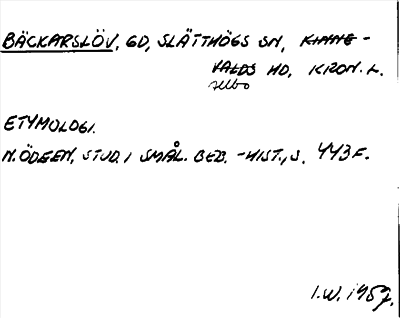 BÄCKARSLÖV, GD, SLÄTTHÖGS SN, KINNE-
VALDS HD, KRON. L.
allbo
ETYMOLOGI.
N. ÖDEEN, STUD. I SMÅL. BEB. -HIST., S. 443 F.
I.W. 1957.